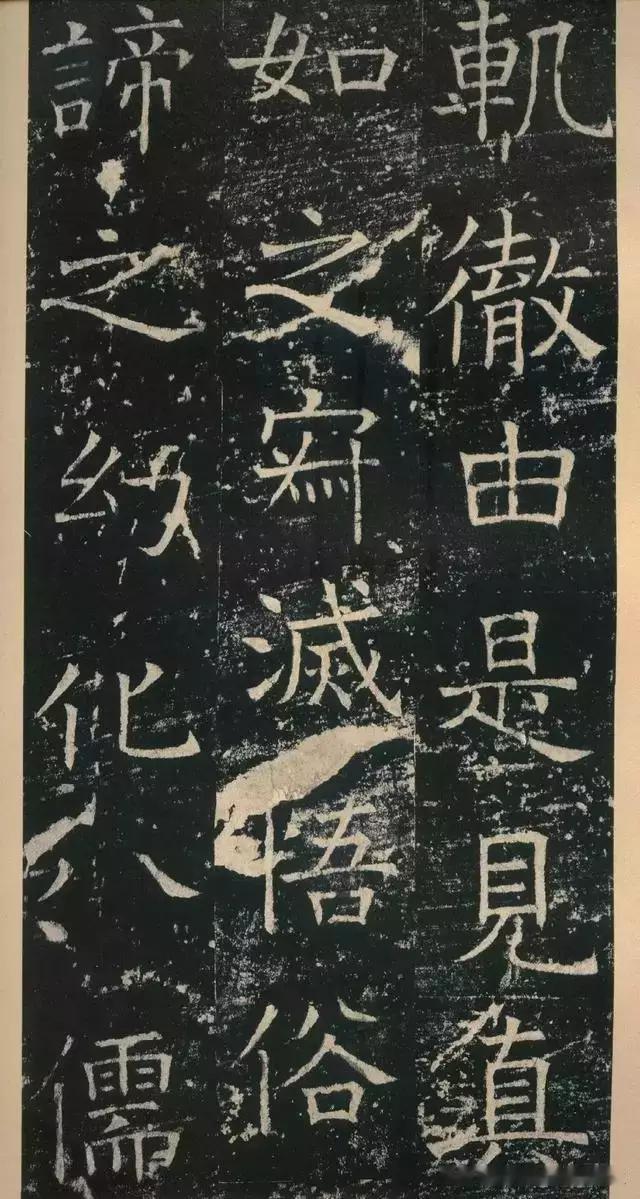 軌徹由是見真
如之寂滅悟俗
諦之化八儒